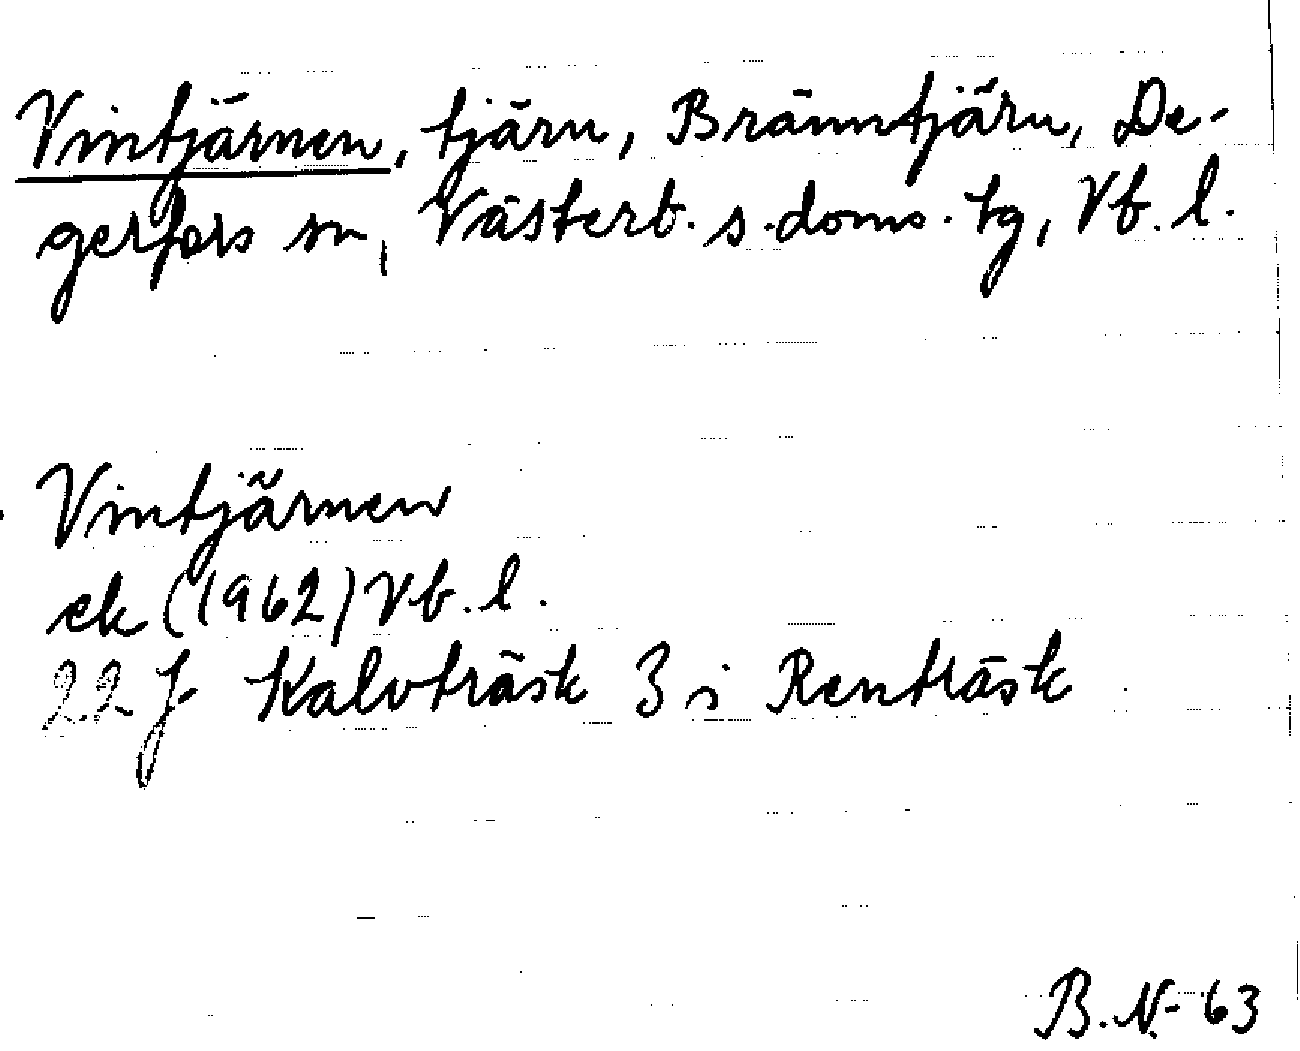 Vintjärnen, tjärn, Brännntjärn, De-
gerfors sn, Västerb. s. doms. tg, Vb. l.
Vintjärnen
ek (1962) Vb. l.
22 J Kalvträsk 3 i Renträsk
B.N- 63